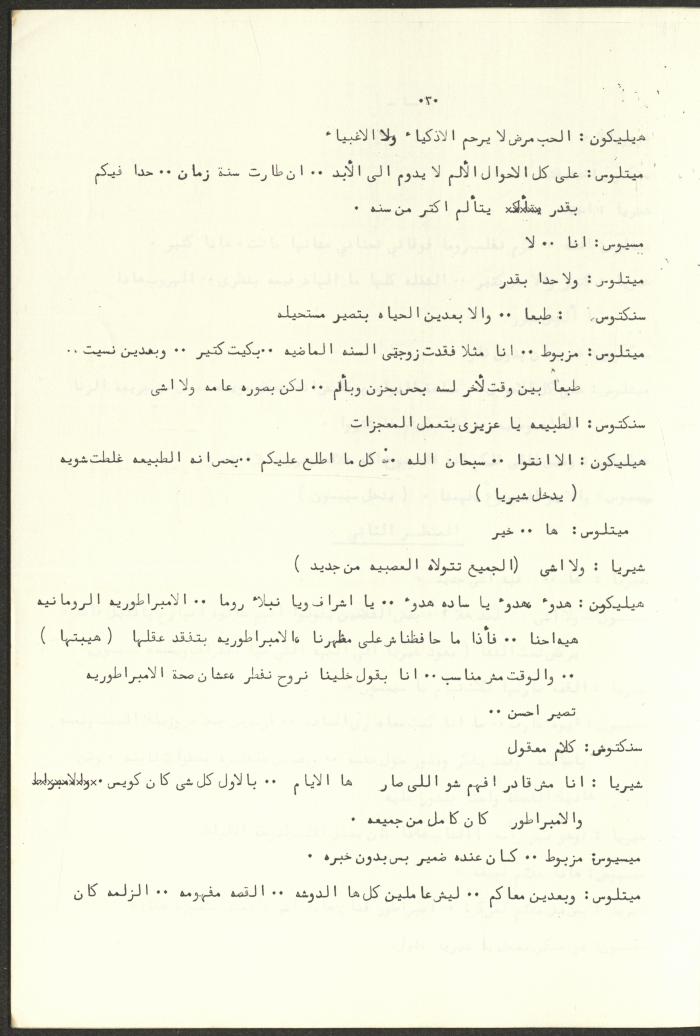 ٠٣٠
هيليكون : الحب مرض لا يرحم الاذكياء ولا الاغبياء
ميتلوس : على كل الاحوال الألم لا يدوم الى الأبد ٠٠ ان طارت سنة زمان ٠٠ حدا فيكم
بقدر يتألم اكتر من سنه ٠
مسيوس : انا ٠٠ لا
ميتلوس : ولا حدا بقدر
سنكتوس : طبعا ٠٠ والا بعدين الحياه بتصير مستحيله
ميتلوس : مزبوط ٠٠ انا مثلا فقدت زوجتي السنه الماضيه ٠٠ بكيت كتير ٠٠ وبعدين نسيت ٠٠
طبعاً بين وقت لأخر لسه بحس بحزن وبألم ٠٠ لكن بصوره عامه ولا اشى
سنكتوس : الطبيعه يا عزيزى بتعمل المعجزات
هيليكون : الا انقوا ٠٠ سبحان الله ٠٠ كل ما اطلع عليكم ٠٠ بحس انه الطبيعه غلطت شويه
( يدخل شيريا )
ميتلوس : ها ٠٠ خير
شيريا : ولا اشى (الجميع تتولاه العصبيه من جديد )
هيليكون : هدوء هدوء يا ساده هدوء ٠٠ يا اشراف ويا نبلاء روما ٠٠ الامبراطوريه الرومانيه
هيه احنا ٠٠ فأذا ما حافظناش على مظهرنا ،الامبراطوريه بتفقد عقلها ( هيبتها )
٠٠ والوقت مش مناسب ٠٠ انا بقول خلينا نروح نفطر ،عشان صحة الامبراطوريه
تصير احسن ٠٠
سنكتوس : كلام معقول
شيريا : انا مش قادر افهم شو اللى صار ها الايام ٠٠ بالاول كل شى كان كويس ٠ والامبراط
والامبراطور كان كامل من جميعه ٠
ميسيوس : مزبوط ٠٠ كان عنده ضمير بس بدون خبره ٠
ميتلوس : وبعدين معاكم ٠٠ ليش عاملين كل ها الدوشه ٠٠ القصه مفهومه ٠٠ الزلمه كان